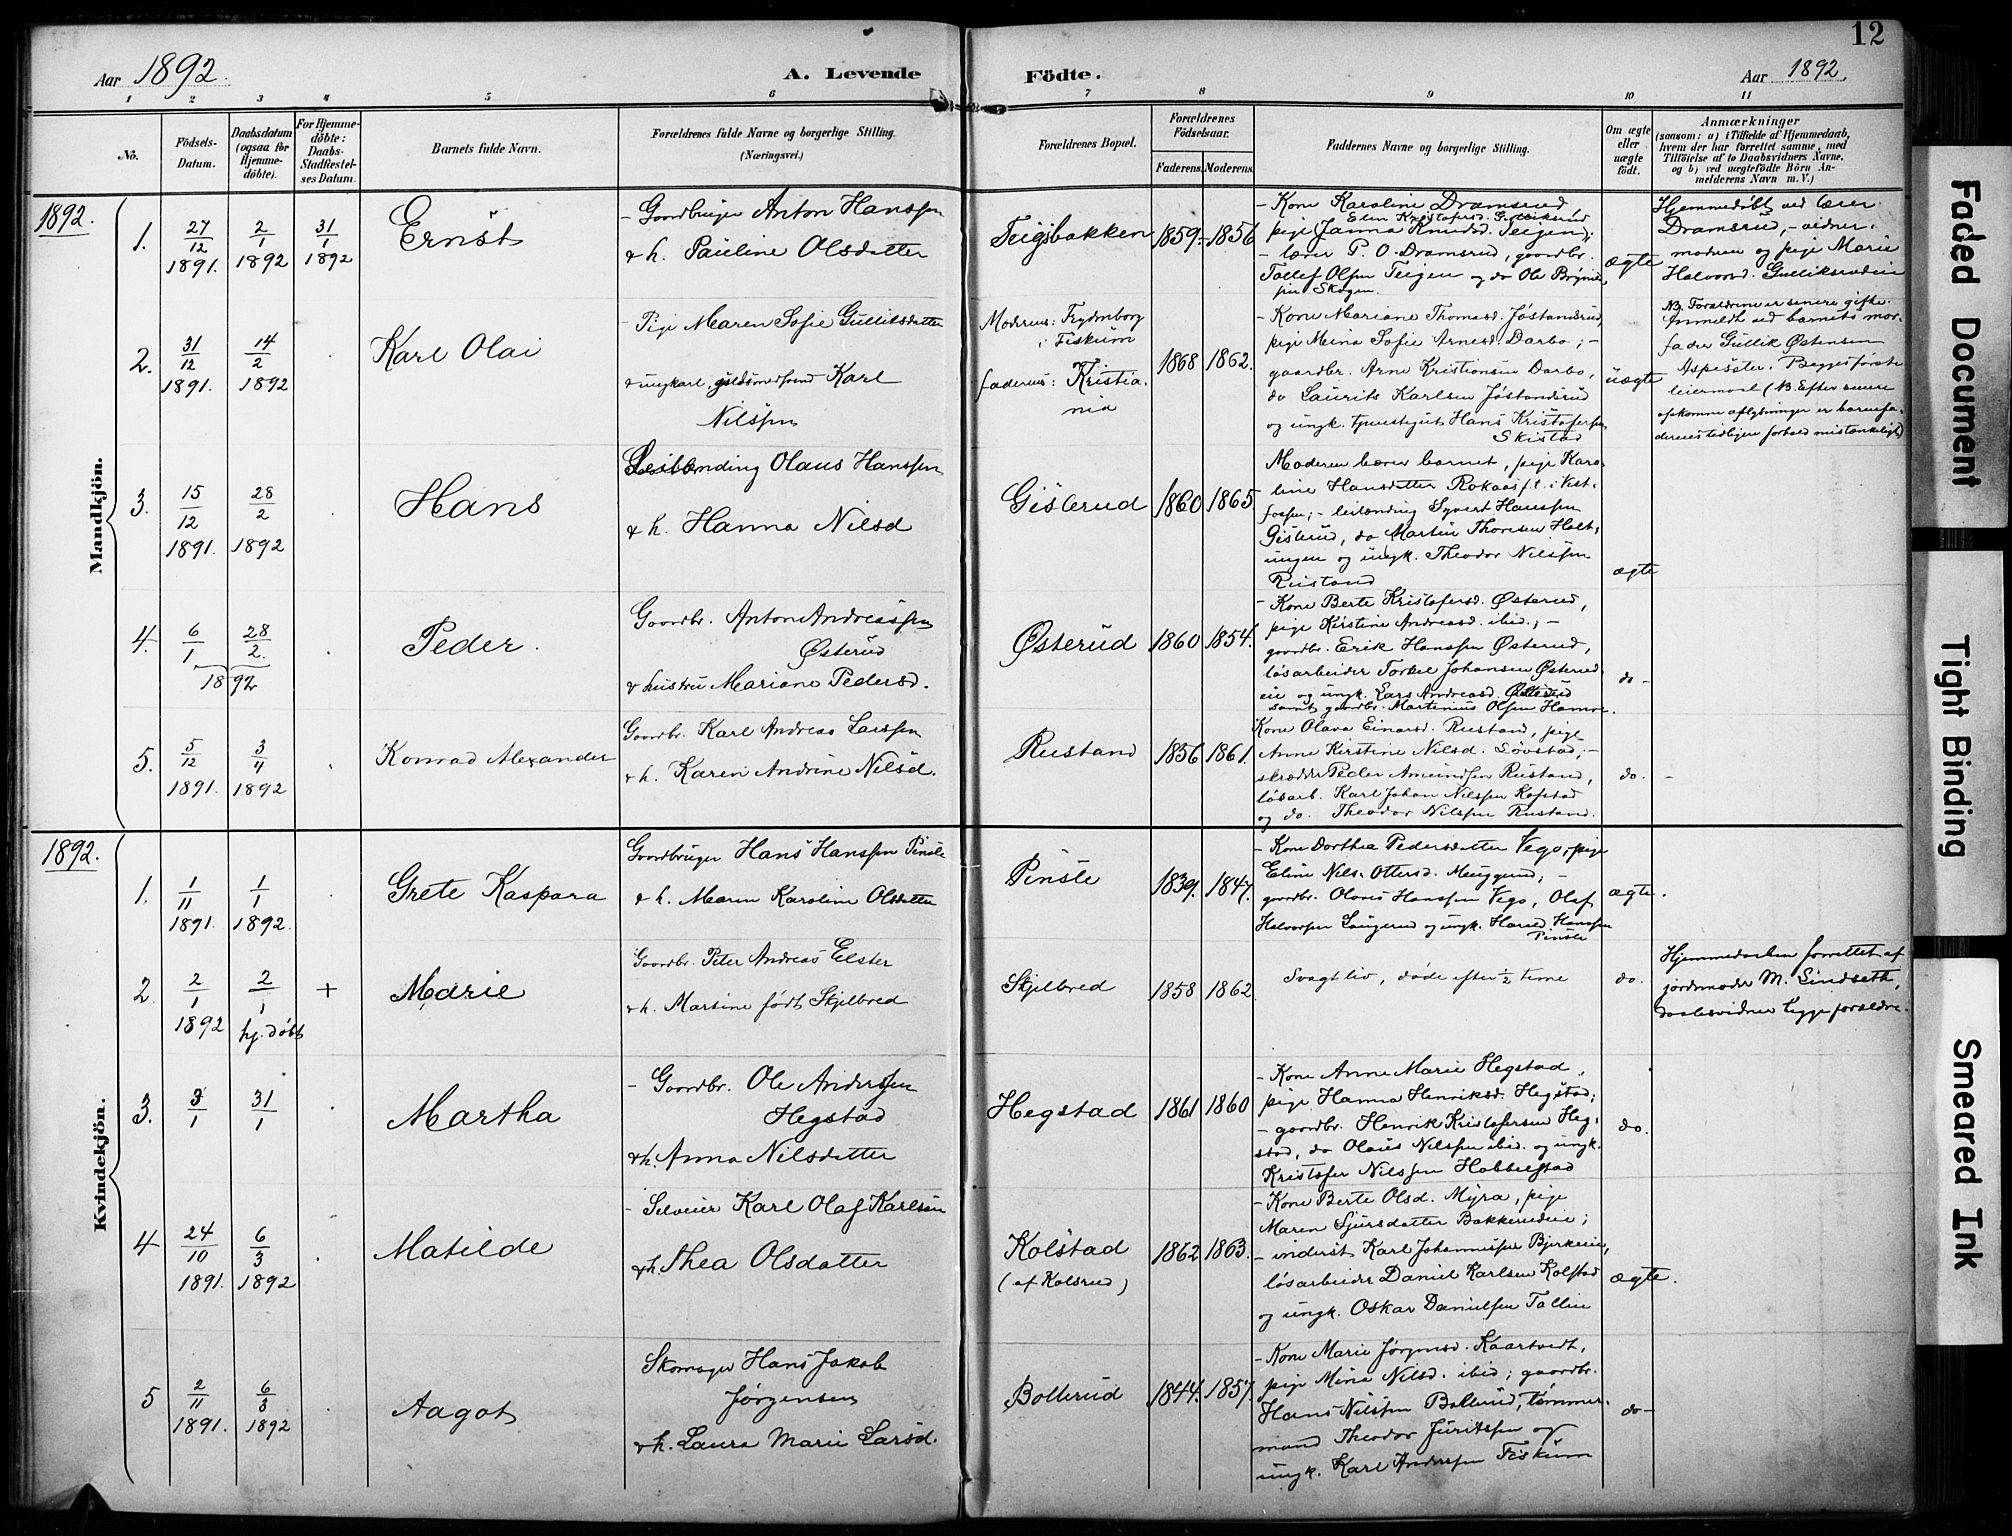 12
Aar 1892.
A. Levende Födte.
Aar 1892.
1 2 3 4 5 6 7 8 9 10 11
No.
Födsels-Datum.
Daabsdatum (ogsaa for Hjemme-döbte).
For Hjemme-döbte: Daabs-Stadfestel-ses Datum.
Barnets fulde Navn.
Forældrenes fulde Navne og borgerlige Stilling. (Næringsvei.)
Forældrenes Bopæl.
Forældrenes Födselsaar.
Faderens. Moderens.
Faddernes Navne og borgerlige Stilling.
Om ægte eller uægte födt.
Anmærkninger
(saasom: a) i Tilfælde af Hjemmedaab,
hvem der har forrettet samme, med
Tilföielse af to Daabsvidners Navne,
og b) ved uægtefödte Börn An-
melderens Navn m. V.)
1892.
Mandkjön.
1. 27/12 1891. 2/1 1892 31/1 1892
Ernst
- Gaardbruger Anton Hanssen
& h. Pauline Olsdatter
Teigsbakken 1859- 1856
- Kone Karoline Dramsrud
Elen Kristofersd. Gulliksrud
pige Janna Knudsd. Teigen;
- lærer P. O. Dramsrud, gaardbr.
Tollef Olsen Teigen og do Ole
Skogen.
ægte
Hjemmedøbt ved lærer
Dramsrud, -
og pige Marie
Halvorsd. Gulliksrudeie
2. 31/12 1891. 14/2 1892
Karl Olai
- Pige Maren Sofie Gulliksdatter
& ungkarl, guldsmedsvend Karl
Nilssen
Moderens: Frydenborg
i Fiskum
faderens: Kristia-
nia
1868 1862.
- Kone Mariane Thomasd. Jøstandsrud,
pige Mina Sofie Arnesd. Darbo; -
gaardbr. Arne Kristiansen Darbo,
do Laurits Karlsen Jøstandsrud
og ungk. Hans Kristofersen
Skistad
uægte
NB. Forældrene er senere gifte.
Anmeldt ved barnets mor-
fader Gullik Østensen
Aspesæter. Begges første
leiermaal (NB. Efter senere
opkomne oplysninger er barnefa-
derens tidligere forhold mistænkeligt)
3. 15/12 1891. 28/2 1892
Hans
Leilænding Olaus Hanssen
& h. Hanna Nilsd
Gislerud 1860 1865
Moderen bærer barnet, pige Karo-
line Hansdatter Rokaas f.t. i Vest-
fossen; - leilænding Syvert Hanssen
Gislerud, do Martin Thoresen Holt-
ungen og ungk. Theodor Nilssen
Rustand
ægte
4. 6/1 28/2. 1892
Peder.
Gaardbr. Anton Andreassen
Østerud
& hustru Mariane Pedersd.
Østerud 1860 1854.
- Kone Berte Kristofersd. Østerud,
pige Kirstine Andreasd. ibid.; -
gaardbr. Erik Hanssen Østerud,
løsarbeider Torkel Johansen Østerud-
eie og ungk. Lars Andreasd. Østerud
samt gaardbr. Martinius Olsen Hamre.
do -
5. 5/12 1891. 3/4 1892
Konrad Alexander
Gaardbr. Karl Andreas Larssen
& h. Karen Andrine Nilsd.
Rustand 1856 1861.
Kone Olava Einarsd. Rustand, pige
Anne Kirstine Nilsd. Løvstad; -
skrædder Peder Amundsen Rustand,
løsarb. Karl Johan Nilssen Kopstad
og do. Theodor Nilssen Rustand.
do. -
1892.
Kvindekjön.
1. 1/11 1891. 1/1 1892.
Grete Kaspara
Gaardbruger Hans Hanssen Pinsle
& h. Maren Karoline Olsdatter
Pinsle 1839. 1847.
- Kone Dorthea Pedersdatter Vego, pige
Eline Nils-Ottersd. ; -
gaardbr. Olaves Hanssen Vego, Olaf
Halvorsen Langerud og ungk. Hanssen
Pinsle
ægte.
2. 2/1 1892 2/1 hj. døbt +
Marie
Gaardbr. Peter Andreas Elster
& h. Martine født Skjelbred
Skjelbred 1858 1862
Svagt liv, døde efter ½ time
do.
Hjemmedaaben forrettet af
jordmoder M. Lindseth,
daabsvidner begge forældre.
3. 3/1 31/1
Martha
- Gaardbr. Ole Anderssen
Hegstad
& h. Anna Nilsdatter
Hegstad 1861 1860
- Kone Anne Marie Hegstad,
pige Hanna Henriksd. Hegstad;
- gaardbr. Henrik Kristofersen Heg-
stad, do Olaus Nilssen ibid. og ungk.
Kristofer Nilssen Hobbelstad
do.
4 24/10 1891. 6/3 1892
Matilde
- Selveier Karl Olaf Karlsen
& h. Thea Olsdatter
Kolstad
(af Kolsrud)
1862 1863.
- Kone Berte Olsd. Myra, pige
Maren Sjursdatter Bakkerudeie;
- inderst Karl Johannessen Bjerkeeie,
løsarbeider Daniel Karlsen Kolstad
og ungk. Oskar Danielsen Tollin
ægte.
5 2/11 1891. 6/3 1892
Aagot
Skomager Hans Jakob
Jørgensen
& h. Laura Marie Larsd.
Bollerud 1844. 1857.
- Kone Marie Jørgensd. Kaartvedt,
pige Mina Nilsd. ibid; gaardbr.
Hans Nilssen Bollerud, tømmer-
mand Theodor Juritssen og
ungk. Karl Anderssen Fiskum
do -
Faded Document
Tight Binding
Smeared Ink